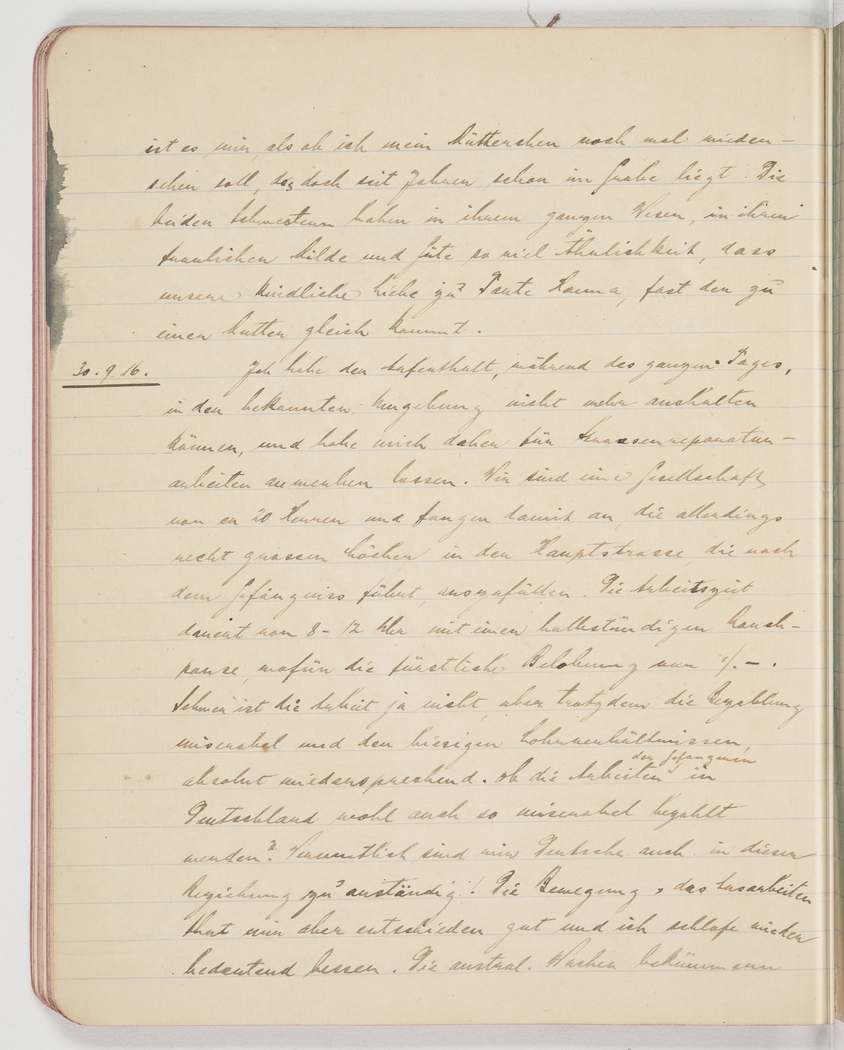 ist es mir, als ob ich mein Mütterchen noch mal wieder-
sehen soll, das doch seit Jahren schon im Grabe liegt. Die
beiden Schwestern haben in ihrem ganzen Wesen, in ihrer
fraulichen Milde und Güte so viel Ähnlichkeit, dass
unsere kindliche Liebe zu Tante Hanna, fast der zu
einer Mutter gleich kommt.
30.9.16. Ich habe den Aufenthalt, während des ganzen Tages,
in der bekannten Umgebung nicht mehr aushalten
können, und habe mich daher für Strassenreparatur-
arbeiten anwerben lassen. Wir sind eine Gesellschaft
von ca 20 Herren und fangen damit an, die allerdings
recht grossen Löcher in der Hauptstrasse, die nach
dem Gefängniss führt, auszufüllen. Die Arbeitszeit
dauert von 8-12 Uhr mit einer halbständigen Rauch-
pause, wofür die fürstliche Belohnung von 1/.-.
Schwer ist die Arbeit ja nicht, aber trotzdem die Bezahlung
miserabel und den hiesigen Lohnverhältnissen,
absolut wiedersprechend. Ob die Arbeiten der Gefangenen in
Deutschland wohl auch so miserabel bezahlt
werden? Vermutlich sind wir Deutsche auch in dieser
Beziehung zu anständig! Die Bewegung, das Ausarbeiten
thut mir aber entschieden gut und ich schlafe wieder
bedeutend besser. Die austral. Wachen bekümmern